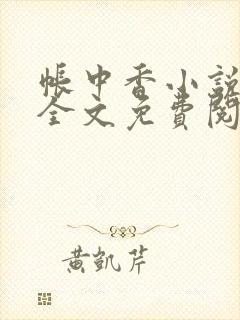 帳中香小說
全文免費閱
黃凱芹